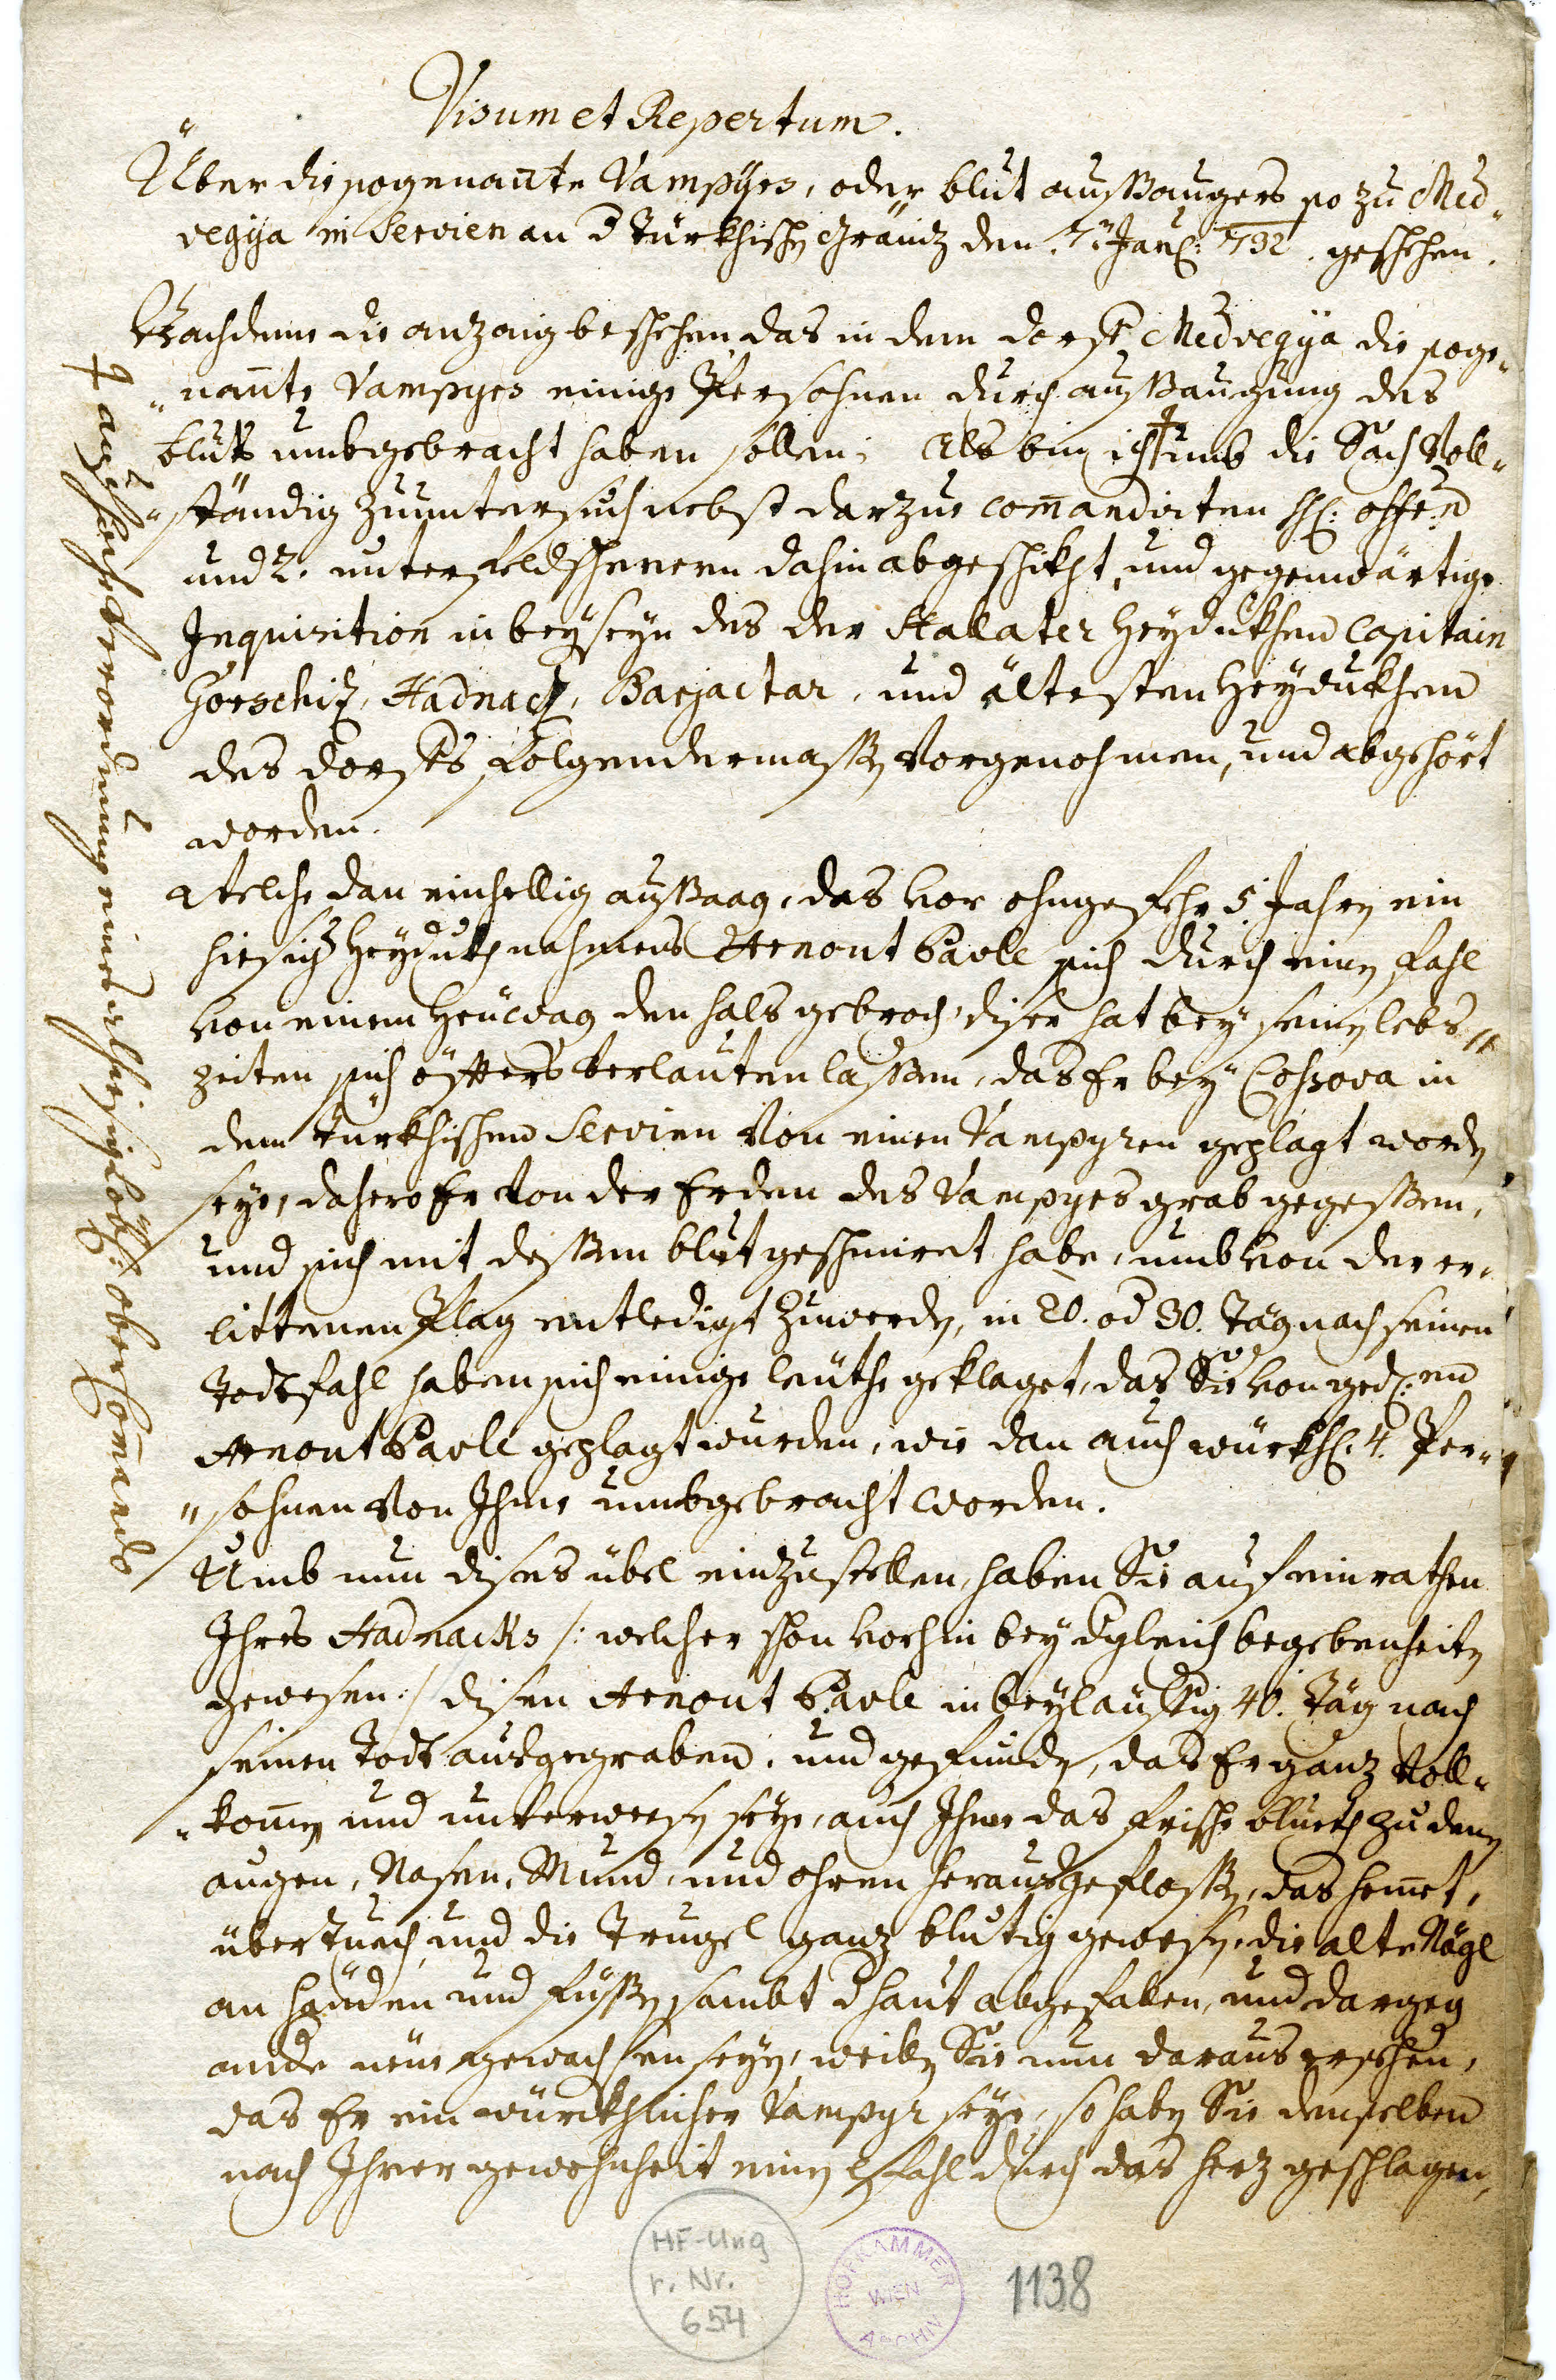 Visum et Repertum.
Über die sogenañte Vampÿrs, oder blut außaugers so zu Med-
vegÿa in Servien an d Türkhischen Gränitz den 7. Jan: 1732. geschehen.
Nachdeme die anzaig beschehen, das in dem dorff Medvegÿa die soge-
nañte Vampyrs einige Persohnen durch außaugung des
bluts umbgebracht haben sollen; Als bin ich † umb die Sach Voll-
ständig zuuntersuch nebst darzue com̃andirten H: offen
und 2. unterfeldscherern dahin abgeschikht, und gegenwärtige
Inquisition in beyseyn des der Stallater Heyduckhen Capitain
Gorschiz, Hadnack, Barjactar, und ältesten Heydukhen
des dorffs folgendermassen Vorgenohmen, und abgehört
worden.
Welche dan einhellig außaag, das vor ohngefehr 5. Jahren ein
hiesiger Heyduk nahmens Arnont Paole sich durch einen fahl
von einem Heuwag den hals gebroch, diser hat bey seinen lebs-
zeiten sich öffters verlauten lassen, das Er bey Cossova in
dem türkhischen Servien Von einen Vampyren geplagt worden
seye, dahero Er von der Erden des Vampyrs grab gegessen,
und sich mit dessen blut geschmiret habe, umb von der er-
littenen Plag entledigt zuwerden, in 20. od 30. Täg nach seinen
Todtfahl haben sich einige leuthe geklaget, das Sie von ged:en
Arnont Paole geplagt wurden, wie dan auch würckh: 4. Per-
sohnen Von Ihme umbgebracht worden.
Umb nun dises übel einzustellen, haben Sie auf einrathen
Ihres Hadnacks /: welcher schon vorhin bey dgleich begebenheiten
gewesen :/ disen Arnont Paole in beyläuffig 40. Täg nach
seinen Todt ausgegraben, und gefunden, das Er ganz Voll-
kom̃en und unverwesen seye, auch Ihme das frische bluth zu denen
augen, Nasen, Mund, und ohren herausgeflossen, das hemet,
übertuch, und die Trugel ganz blutig gewesen, die alte Nägl
an händen und füssen sambt d haut abgefallen, und dargeg
ande neue gewachsen seyn, weilen Sie nun daraus ersehen,
das Er ein würckhlicher Vampyr seye, so haben Sie denselben
nach Ihrer gewohnheit einen Pfahl durch das herz geschlagen,
† auf hohe Verordnung eines alhiesig löbl: ober Com̃ando
HF-Ung
r. Nr.
654
HOFKAMMER
WIEN
ARCHIV
1138